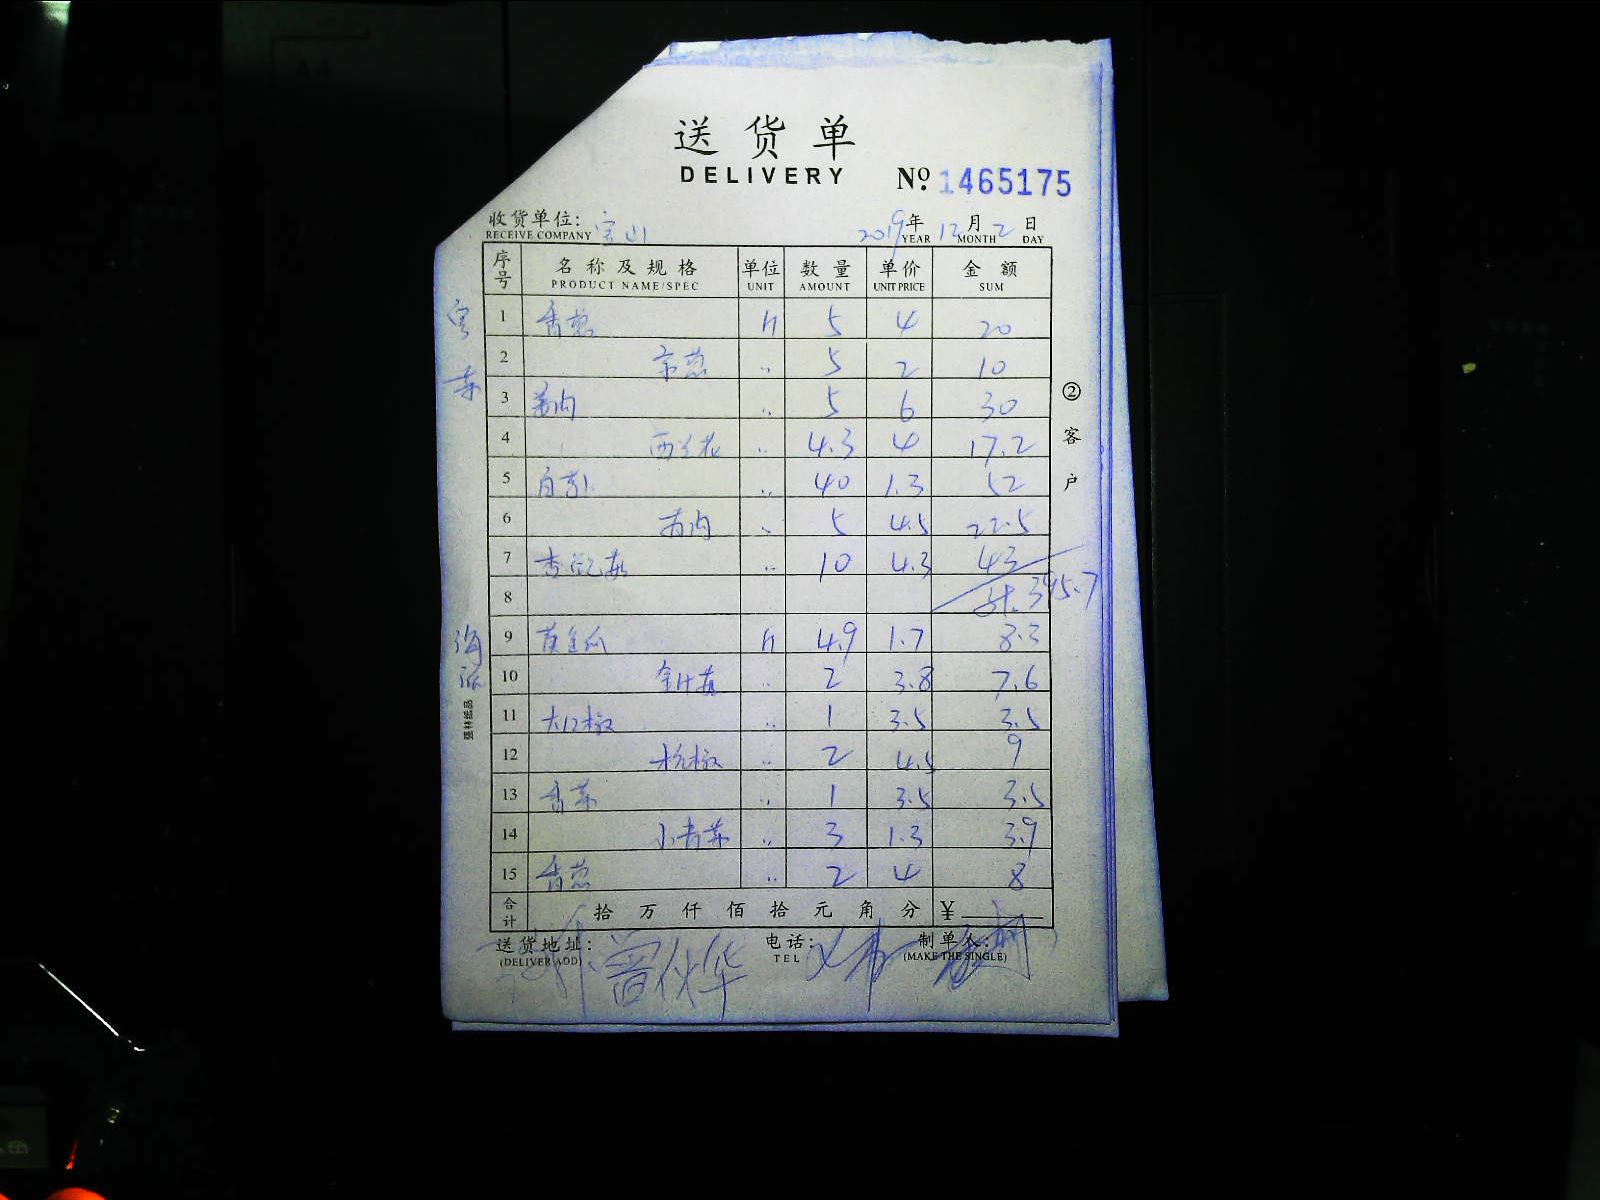 送货单
DELIVERY
No. 1465175
收货单位: 宝山 2019年12月2日
RECEIVE COMPANY YEAR MONTH DAY
序号 名称及规格 单位 数量 单价 金额
PRODUCT NAME/SPEC UNIT AMOUNT UNIT PRICE SUM
1 香葱 斤 5 4 20
2 京葱 〃 5 2 10
3 姜肉 〃 5 6 30
4 西兰花 〃 4.3 4 17.2
5 〃 40 1.3 52
6 〃 5 4.5 22.5
7 杏鲍菇 〃 10 4.3 43
8 计.395.7
9 黄金瓜 斤 4.9 1.7 8.3
10 金针菇 〃 2 3.8 7.6
11 大红椒 〃 1 3.5 3.5
12 杭椒 〃 2 4.5 9
13 香菜 〃 1 3.5 3.5
14 小青菜 〃 3 1.3 3.9
15 香葱 〃 2 4 8
合计 拾万仟佰拾元角分 ¥
送货地址: 电话: 制单人:
(DELIVER ADD) TEL (MAKE THE SINGLE)
②客户
海派
强林纸品